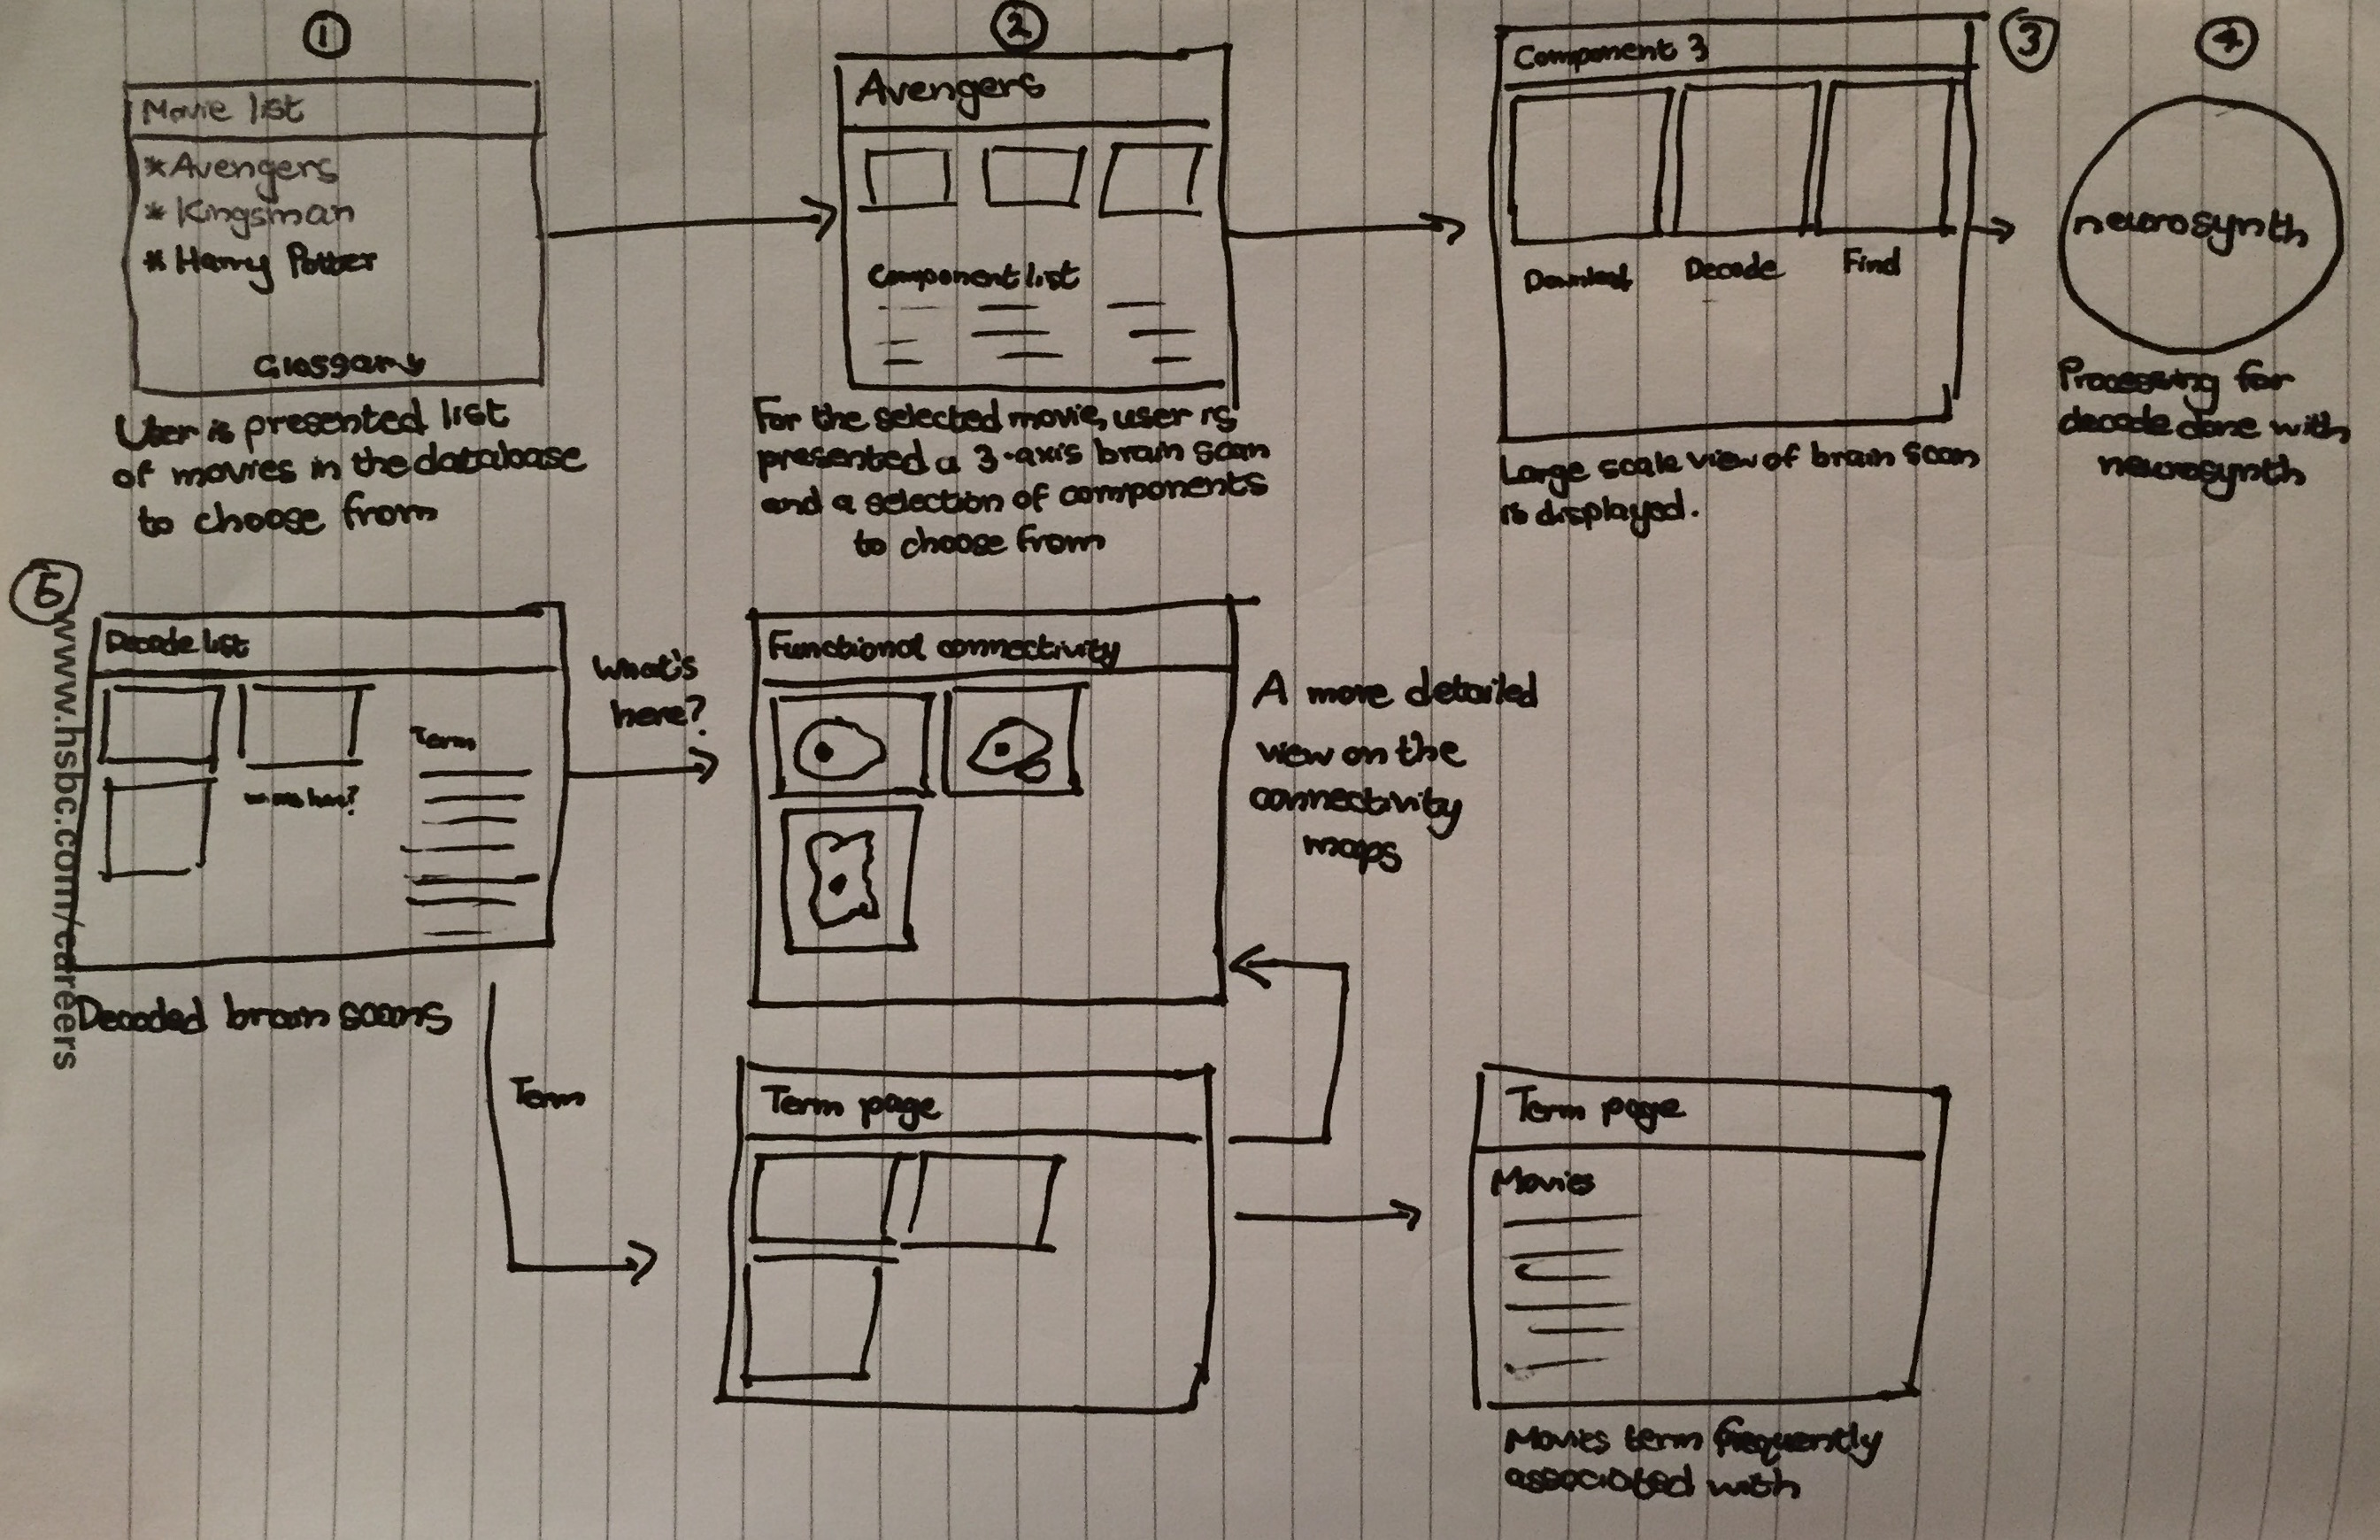 1
Movie list
*Avengers
*Kingsman
*Harry Potter
Glossary
User is presented list
of movies in the database
to choose from
2
Avengers
Component list
For the selected movie, user is
presented a 3-axis brain scan
and a selection of components
to choose from
3
Component 3
Download Decode Find
Large scale view of brain scan
is displayed.
4
neurosynth
Processing for
decode done with
neurosynth
5
Decode list
Term
here?
Decoded brain scans
What's
here?
Functional connectivity
A more detailed
view on the
connectivity
maps
Term
Term page
Term page
Movies
Movies term frequently
associated with
www.hsbc.com/careers